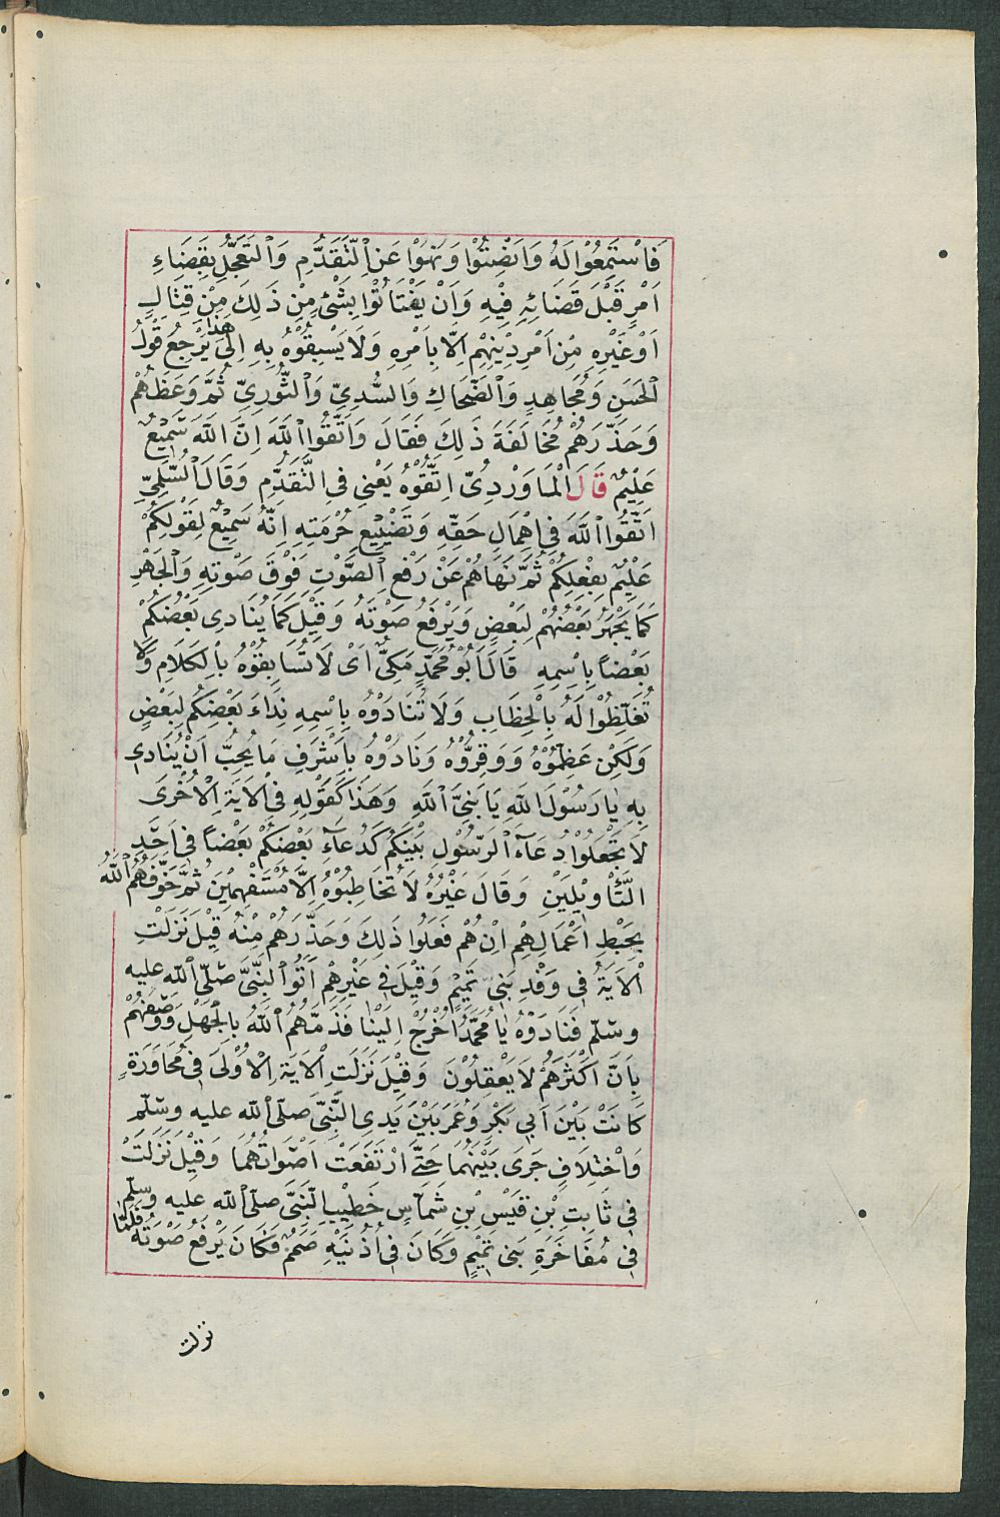 فَاسْتَمِعُوْا لَهُ وَاَنْصِتُوْا وَنُهُوْا عَنِ الْتَّقَدُّمِ وَالْتَعَجُّلِ بِقَضَاءِ
اَمْرٍ قَبْلَ قَضَائِهٖ فِيْهِ وَاَنْ يَفْتَاتُوْا بِشَئٍْ مِنْ ذَلِكَ مِنْ قِتَالٍ
اَوْغَيْرِهٖ مِنْ اَمْرِ دِيْنِهِمْ اِلَّا بِاَمْرِهٖ وَلَا يَسْبِقُوْهُ بِهِ اِلَى هٰذَا يَرْجِعُ قَوْلُ
الْحَسَنِ وَمُجَاهِدٍ وَالْضَّحَاكِ وَالسُّدِيِّ وَالْثَّوْرِيِّ ثُمَّ وَعَظَهُمْ
وَحَذَّرَهُمْ مُخَالَفَةَ ذَلِكَ فَقَالَ وَاتَّقُوا اللّٰهَ اِنَّ اللّٰهَ سَمِيْعٌ
عَلِيْمٌ قَالَ الْمَاوَرْدِىّ اِتَّقُوْهُ يَعْنِى فِى التَّقَدُّمِ وَقَالَ السُّلَمِيّ
اتَّقُوا اللّٰهَ فِى اِهْمَالِ حَقِّهِ وَتَضْيِيْعِ حُرْمَتِهِ اِنَّهُ سَمِيْعٌ لِقَوْلِكُمْ
عَلِيْمٌ بِفِعْلِكُمْ ثُمَّ نَهَاهُمْ عَنْ رَفْعِ الْصَّوْتِ فَوْقَ صَوْتِهِ وَالْجَهْرِ
كَمَا يَجْهَرُ بَعْضُهُمْ لِبَعْضٍ وَيَرْفَعُ صَوْتَهُ وَقِيْلَ كَمَا يُنَادِى بَعْضُكُمْ
بَعْضًا بِاِسْمِهِ قَالَ اَبُوْ مُحَمَّدٍ مَكِىّ اَىْ لَا تُسَابِقُوْهُ بِالْكَلَامِ وَلَا
تُغَلِّظُوْا لَهُ بِالْخِطَابِ وَلَا تُنَادُوْهُ بِاِسْمِهِ نِدَاءَ بَعْضِكُمْ لِبَعْضٍ
وَلَكِنْ عَظِّمُوْهُ وَوَقِّرُوْهُ وَنَادُوْهُ بِاَشْرَفِ مَا يُحِبُّ اَنْ يُنَادى
بِهِ يَا رَسُوْلَ اللّٰهِ يَا نَبِىَّ اللّٰهِ وَهَذَا كَقَوْلِهِ فِى الْاَيَةِ الْاُخْرَى
لَا تَجْعَلُوْا دُعَاءَ الْرَسُوْلِ بَيْنَكُمْ كَدُعَاءِ بَعْضِكُمْ بَعْضاً فِى اَحَدِ
التَّأْوِيْلَيْنِ وَقَالَ غَيْرُهُ لَا تُخَاطِبُوْهُ اِلَّا مُسْتَفْهِمِيْنَ ثُمَّ خَوَّفَهُمُ اللّٰهُ
بِحَبْطِ اَعْمَالِهِمْ اِنْ هُمْ فَعَلُوا ذَلِكَ وَحَذَّرَهُمْ مِنْهُ قِيْلَ نَزَلَتِ
الْاَيَةُ فِى وَفْدِ بَنِى تَمِيْمٍ وَقِيْلَ فِى غَيْرِهِمْ اَتَوُا النَّبِىَّ صَلّى اللّٰه عليه
وسَلّم فَنَادَوْهُ يَا مُحَمَّدُ اُخْرُجْ اِلَيْنَا فَذَمَّهُمُ اللّٰهُ بِالْجَهْلِ وَوَصَفَهُمْ
بِاَنَّ اَكْثَرَهُمْ لَا يَعْقِلُوْنَ وَقِيْلَ نَزَلَتِ الْاَيَةُ الْاُوْلَى فِى مُحَاوَرَةٍ
كَانَتْ بَيْنَ اَبِى بَكْرٍ وَعُمَرَ بَيْنَ يَدِى النَّبِىّ صَلّى اللّٰه عليه وسَلّم
وَاخْتِلَافٍ جَرَى بَيْنَهُمَا حَتَّى ارْتَفَعَتْ اَصْوَاتُهُمَا وَقِيْلَ نَزَلَتْ
فِى ثَابِتِ بْنِ قَيْسِ بْنِ شَمَاسٍ خَطِيْبِ النَّبِىّ صلّى اللّٰه عليه وسلّم
فِى مُفَاخَرَةِ بَنِى تَمِيْمٍ وَكَانَ فِى اُذُنَيْهِ صَمَمٌ فَكَانَ يَرْفَعُ صَوْتَهُ فَلَمَّا
نزلت